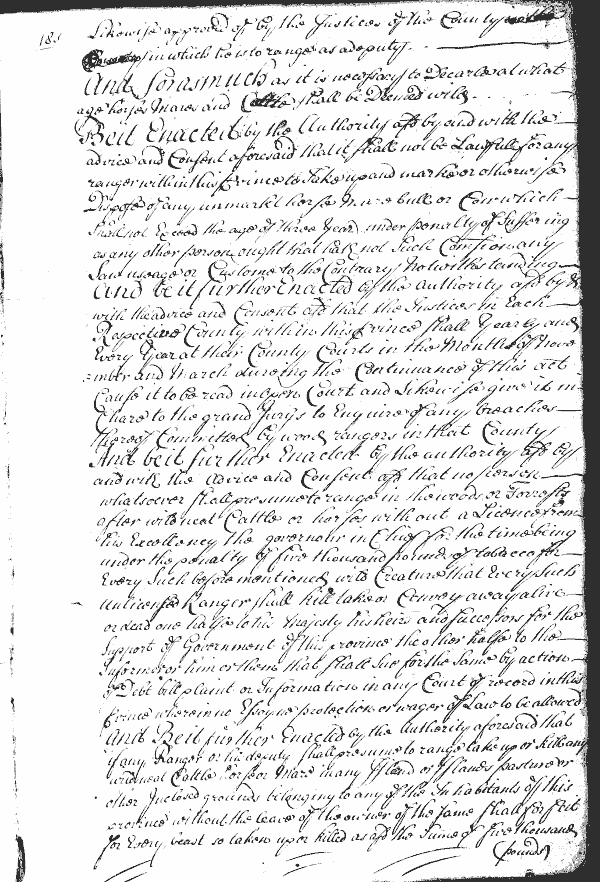 181
Likewise approved of by the Justices of the County
in which he is to range as a deputy.
And forasmuch as it is necessary to Decare at what
age horses Mares and Cattle shall be Deemed wild.
Be it Enacted by the Authority afsd by and with the
advice and Consent aforesaid that it shall not be Lawfull for any
ranger within this Prince to Take up and marke or otherwise
Dispose of any unmarkt horse Mare bull or Cow which
shall not Exceed the age of three Year under penalty of Suffering
as any other person ought that hath not Such Comission any
Law useage or Custome to the Contrary Notwithstanding
And be it further Enacted by the Authority afsd by &
with the advice and Consent afsd that the Justices in Each
Respective County within this Prince shall Yearly and
Every Year at their County Courts in the Months of Nove
=mber and March dureing the Continuance of this act
Cause it to be read in Open Court and Likewise give it in
Chare to the grand Jurys to Enquire of any breaches
thereof Committed by wood rangers in that County
And be it further Enacted by the authority afsd by
and with the Advice and Consent afsd that no person
whatsoever shall presume to range in the woods or Forrests
after wild neat Cattle or horses without a Licence from
his Excellency the governour in Chief for the time being
under the penalty of five thousand pounds of tobacco for
Every Such before mentioned wild Creature that Every Such
Unlicensed Ranger shall kill take or Convey away alive
or dead one halfe to his Majesty his heirs and Successors for the
Support of Government of this province the other halfe to the
Informer or him or them that shall Sue for the Same by action
of Debt bill plaint or Information in any Court of record in this
Prince wherein no Essoyne protection or wager of Law to be allowed
And Be it further Enacted by the Authority aforesaid that
if any Ranger or his deputy shall presume to range take up or kill any
wild neat Cattle horse or Mare in any Island or Islands pasture or
other Inclosed grounds belonging to any of the Inhabitants of this
province without the leave of the owner of the Same shall forfeit
for Every beast so taken up or killed as afsd the Sume of five thousand
pounds